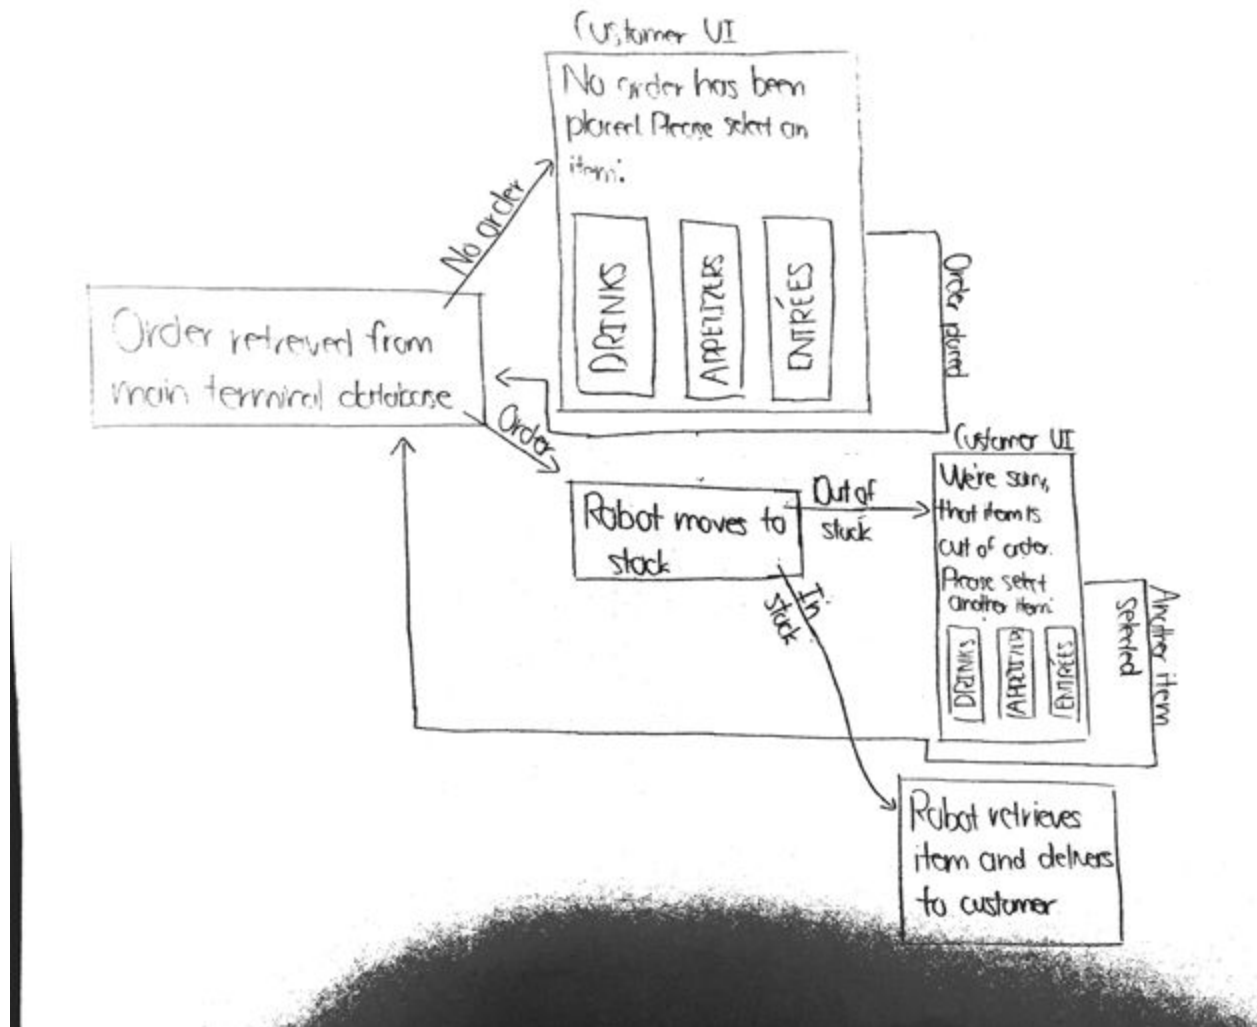 Customer UI
No order has been
placed. Please select an
item:
DRINKS
APPETIZERS
ENTRÉES
No order
Order placed
Order retreived from
main terminal database
Order
Robot moves to
stock
Out of
stock
In
stock
Customer UI
We're sorry,
that item is
out of order.
Please select
another item:
DRINKS
APPETIZERS
ENTRÉES
Another item
selected
Robot retrieves
item and delivers
to customer